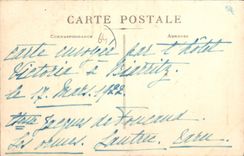 CARTE POSTALE
CORRESPONDANCE ADRESSE
carte envoyée par l'hôtel
Victoria à Biarritz
le 17. Mars. 1922.
Jacques de Foucaud
Les Ormes. Lautrec. Tarn.